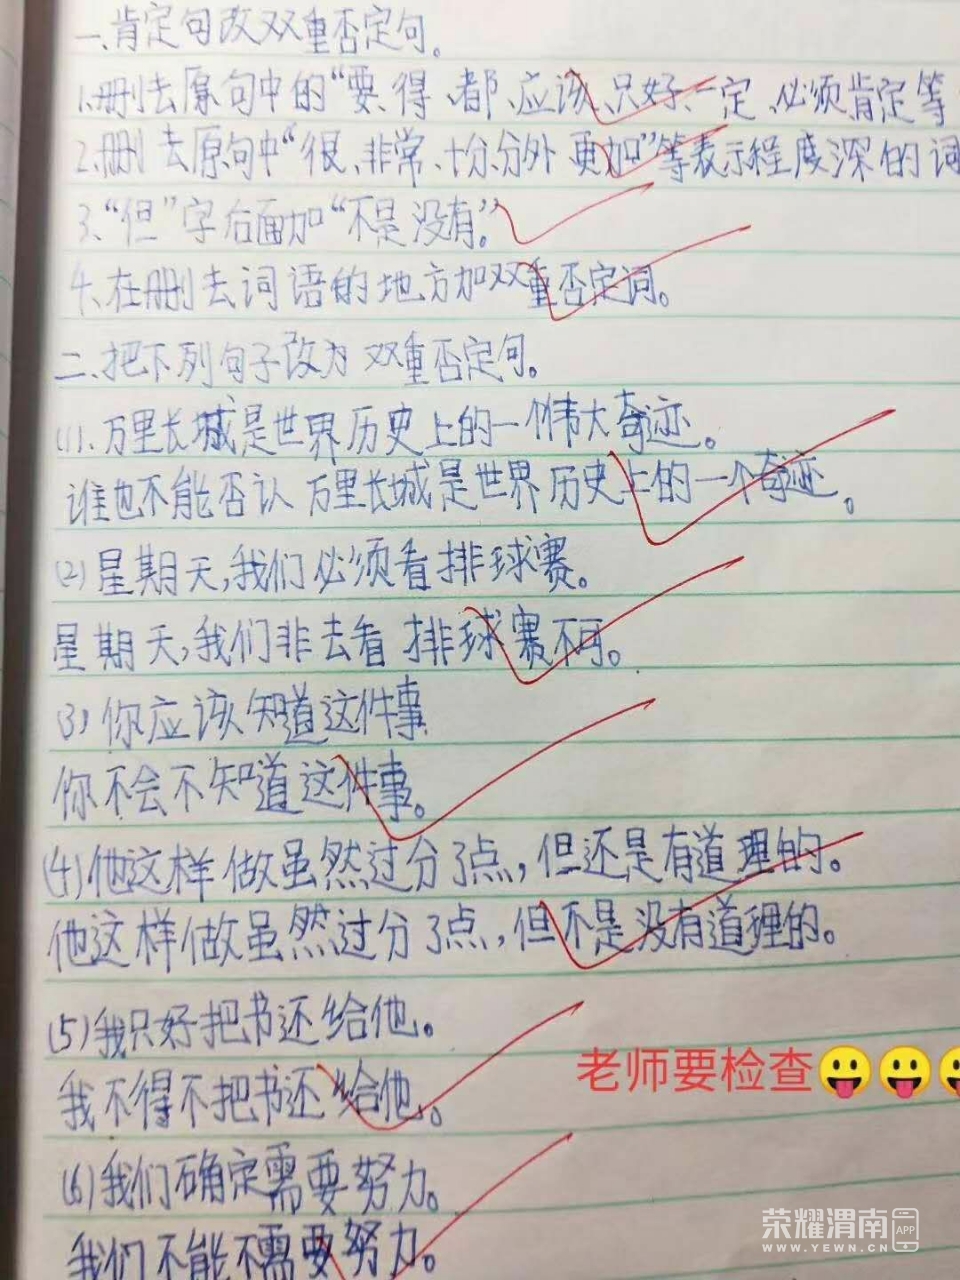 一、肯定句改双重否定句。
1.删去原句中的“要、得、都、应该、只好、一定、必须肯定等
2.删去原句中“很、非常、十分、分外 更加”等表示程度深的词
3、“但”字后面加“不是没有”
4、在删去词语的地方加双重否定词。
二、把下列句子改为双重否定句。
(1)、万里长城是世界历史上的一个伟大奇迹。
谁也不能否认万里长城是世界历史上的一个奇迹。
(2)星期天,我们必须看排球赛。
星期天,我们非去看排球赛不可。
(3)你应该知道这件事
你不会不知道这件事。
(4)他这样做虽然过分了点,但还是有道理的。
他这样做虽然过分了点,但不是没有道理的。
(5)我只好把书还给他。
老师要检查😛😛😛
我不得不把书还给他。
(6)我们确定需要努力。
我们不能不需要努力。
荣耀渭南APP
WWW.YEWN.CN